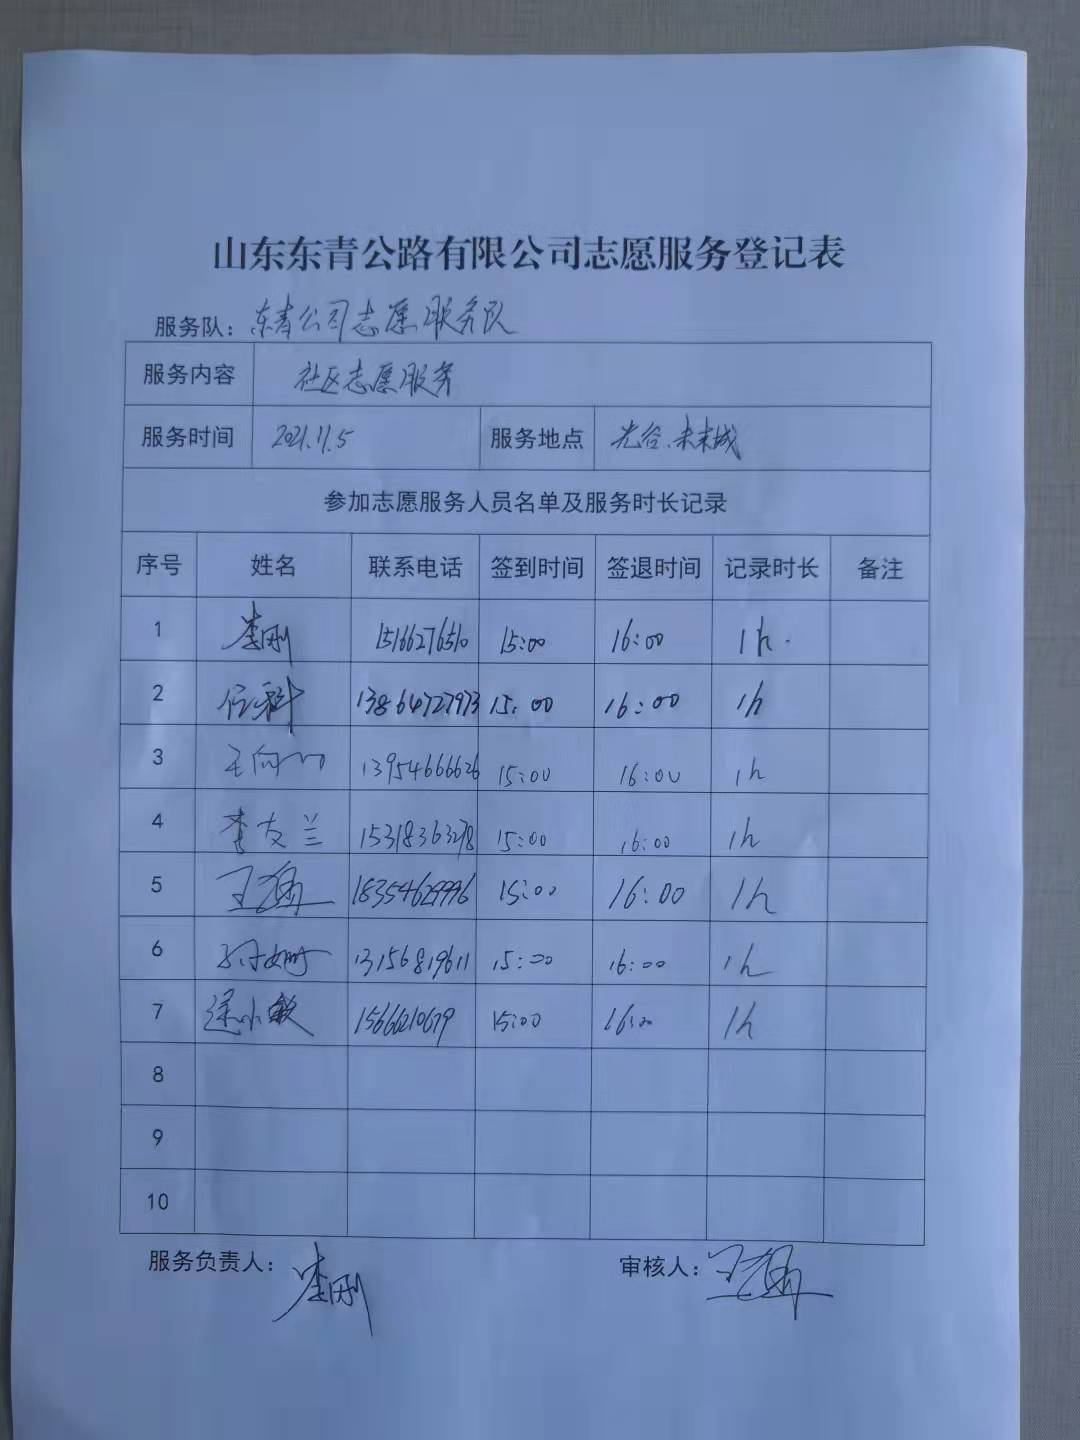 山东东青公路有限公司志愿服务登记表
服务队：东青公司志愿服务队
服务内容 社区志愿服务
服务时间 2021.11.5 服务地点 光谷.未来城
参加志愿服务人员名单及服务时长记录
序号 姓名 联系电话 签到时间 签退时间 记录时长 备注
1 李刚 15166276510 15:00 16:00 1h.
2 任科 13864727973 15:00 16:00 1h
3 13954666626 15:00 16:00 1h
4 李友兰 15318363278 15:00 16:00 1h
5 18354629996 15:00 16:00 1h
6 孙姗 13156819611 15:00 16:00 1h
7 15:00 16:00 1h
8
9
10
服务负责人：李刚 审核人：